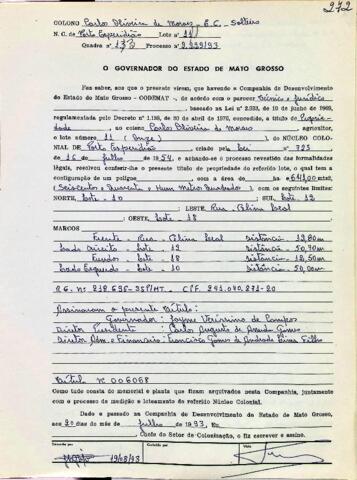 272
COLONO Carlos Oliveira de Moraes - E.C. - Solteiro
N. C. de Porto Esperidião Lote nº 11
Quadra nº 133 Processo nº 2.239/93
O GOVERNADOR DO ESTADO DE MATO GROSSO
Faz saber, aos que o presente virem, que havendo a Companhia de Desenvolvimento
do Estado do Mato Grosso - CODEMAT -, de acordo com o parecer Técnico e Jurídico
, baseado na Lei nº 2.933, de 10 de junho de 1969,
regulamentada pelo Decreto nº 1.186, de 30 de abril de 1970, concedido, a título de
, ao colono Carlos Oliveira de Moraes, agricultor,
o lote número 11 (Onze), do NÚCLEO COLO-
NIAL DE Porto Esperidião, criado pela Lei nº 723
de 16 de julho de 1954, e achando-se o processo revestido das formalidades
legais, resolveu conferir-lhe o presente título de propriedade do referido lote, o qual tem a
configuração de um polígno com a área de ha 641,00 mts2,
(Seiscentos e Quarenta e Hum Metros Quadrados), com os seguintes limites:
NORTE, Lote - 10 SUL, Lote 12
LESTE, Rua - Local
OESTE, Lote - 18
MARCOS
Frente - Rua - Local Distância - 13,80m
Lado Direito - Lote - 12 Distância - 50,70m
Fundos - Lote - 18 Distância - 12,50m
Lado Esquerdo - Lote - 10 Distância - 50,00m
R.G. Nº 218.696- C.P.F. 241.040.271-20
Assinaram o presente título:
Governador: Jayme Veríssimo de Campos
Diretor Presidente: Carlos Augusto de Gomes
Diretor Adm. e Financeiro: Francisco Gomes de Andrade Lima Filho
Título nº 006068
Como tudo consta do memorial e planta que ficam arquivados nesta Companhia, juntamente
com o processo de medição e loteamento do referido Núcleo Colonial.
Dado e passado na Companhia de Desenvolvimento do Estado de Mato Grosso,
aos 20 dias do mês de julho de 1993, Eu
, Chefe do Setor de Colonização, o fiz escrever e assino.
Visto
19/08/93